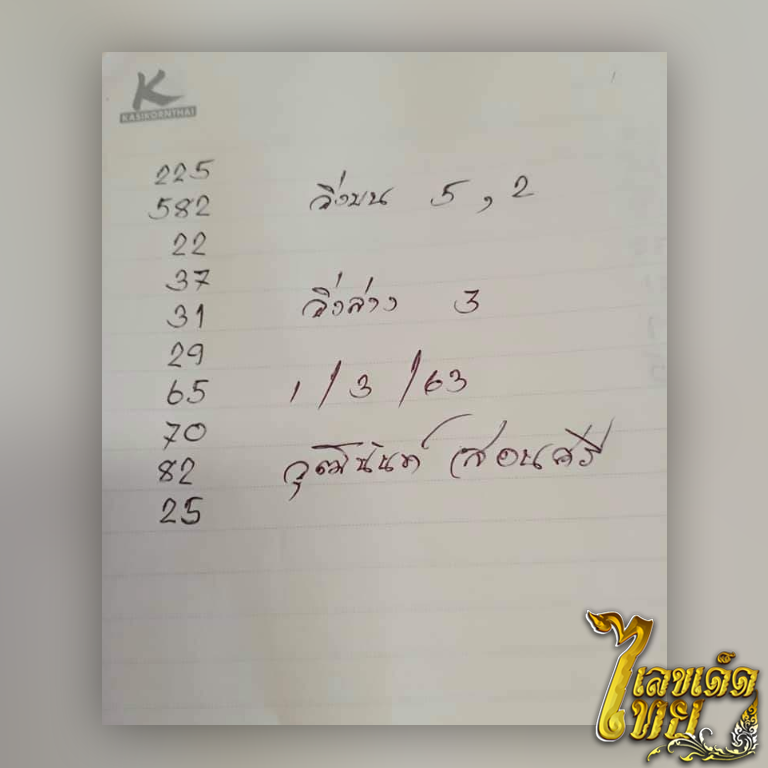 K
KASIKORNTHAI
225
582
22
37
31
29
65
70
82
25
วิ่งบน 5 , 2
วิ่งล่าง 3
1 / 3 / 63
วุฒินันท์ สอนศรี
ไทย
เลขเด็ด